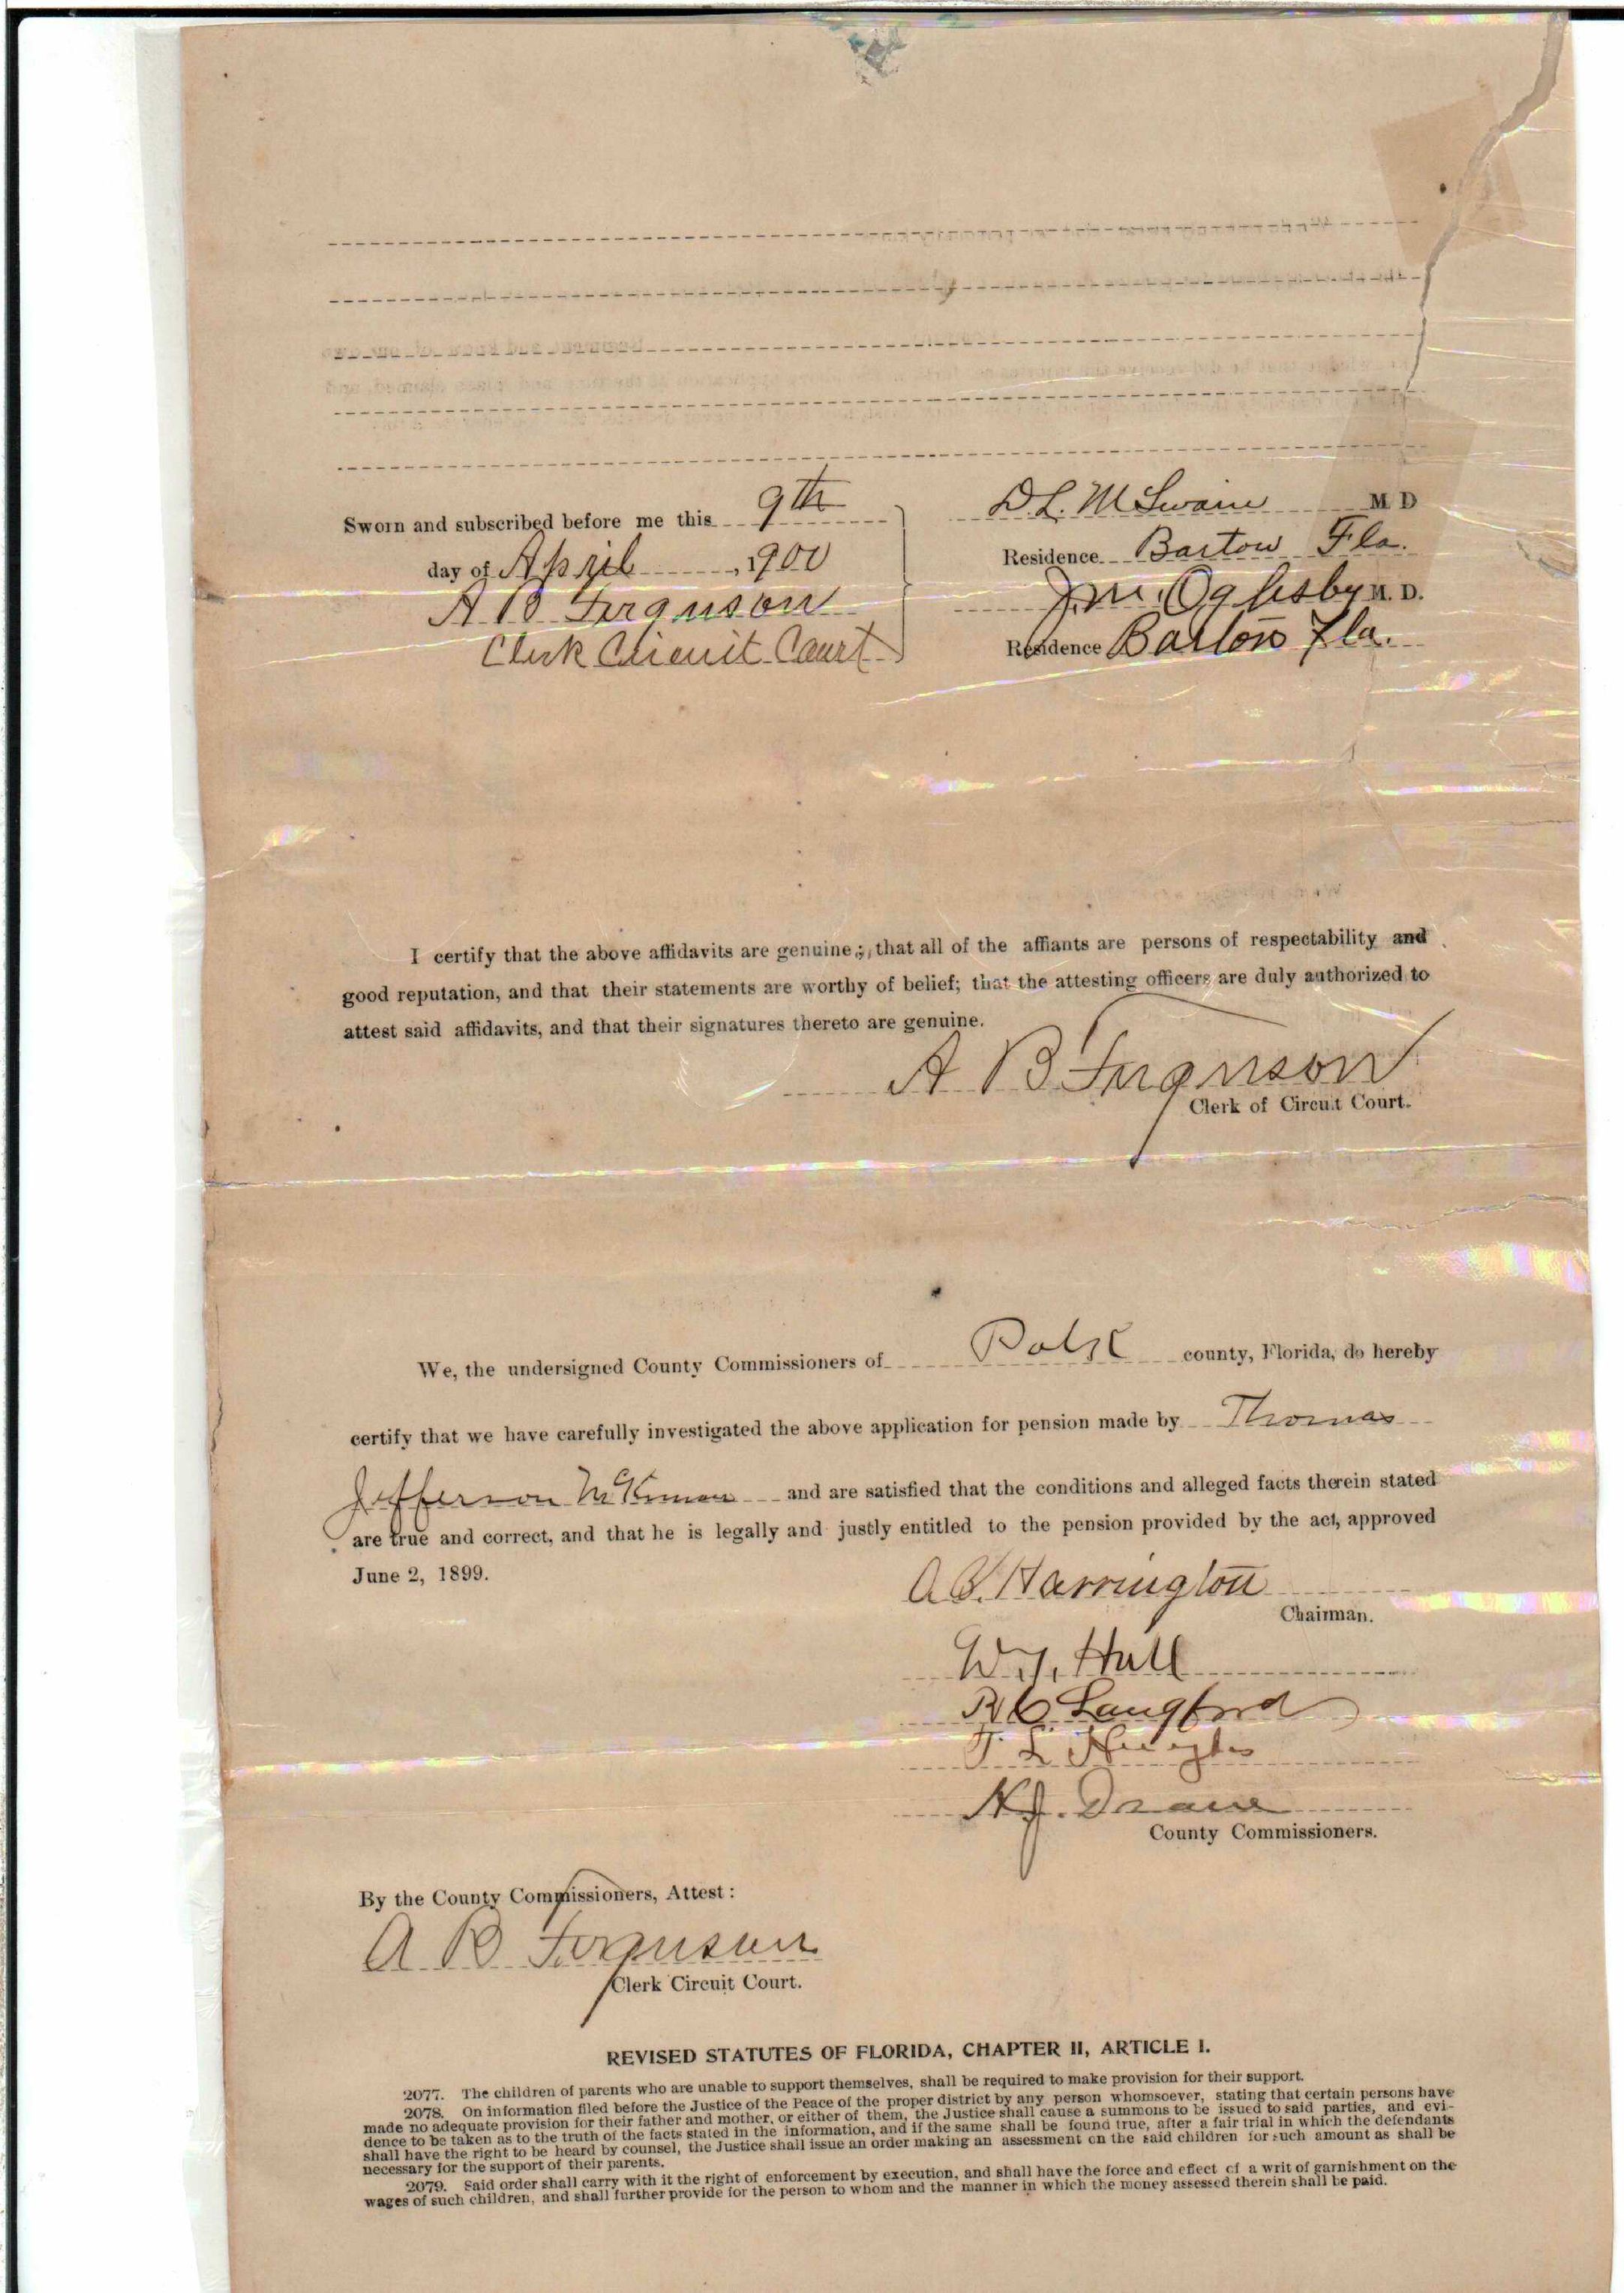 Sworn and subscribed before me this 9th
day of April, 1900
A B Ferguson
Clerk Circuit Court
D L. McSwain M D
Residence Bartow Fla.
J.M. Oglesby M. D.
Residence Bartow Fla.
I certify that the above affidavits are genuine; that all of the affiants are persons of respectability and
good reputation, and that their statements are worthy of belief; that the attesting officers are duly authorized to
attest said affidavits, and that their signatures thereto are genuine.
A B Ferguson
Clerk of Circuit Court.
We, the undersigned County Commissioners of Polk county, Florida, do hereby
certify that we have carefully investigated the above application for pension made by Thomas
Jefferson and are satisfied that the conditions and alleged facts therein stated
are true and correct, and that he is legally and justly entitled to the pension provided by the act, approved
June 2, 1899.
A B. Harrington
Chairman.
W. J. Hull
R C Langford
T. L. Hughes
H J. Drane
County Commissioners.
By the County Commissioners, Attest:
A B Ferguson
Clerk Circuit Court.
REVISED STATUTES OF FLORIDA, CHAPTER II, ARTICLE I.
2077. The children of parents who are unable to support themselves, shall be required to make provision for their support.
2078. On information filed before the Justice of the Peace of the proper district by any person whomsoever, stating that certain persons have
made no adequate provision for their father and mother, or either of them, the Justice shall cause a summons to be issued to said parties, and evi-
dence to be taken as to the truth of the facts stated in the information, and if the same shall be found true, after a fair trial in which the defendants
shall have the right to be heard by counsel, the Justice shall issue an order making an assessment on the said children for such amount as shall be
necessary for the support of their parents.
2079. Said order shall carry with it the right of enforcement by execution, and shall have the force and effect of a writ of garnishment on the
wages of such children, and shall further provide for the person to whom and the manner in which the money assessed therein shall be paid.